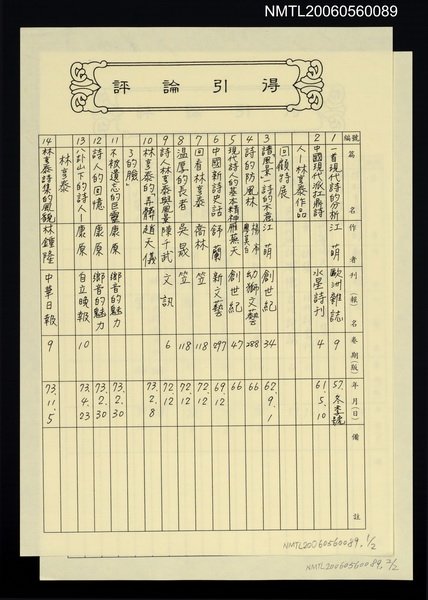 NMTL20060560089
評論引得
編號 篇名 作者 刊(報)名 卷期(版) 年月(日) 備註
1 一首現代詩的分析 江萌 歐洲雜誌 9 57.冬季號
2 中國現代派 水星詩刊 4 61.5.10
人—林亨泰作品
回顧詩展
3 譜風景 詩的 江萌 創世紀 34 62.9.1
4 詩的防風林 幼獅文藝 288 66
5 現代詩人的基本精神 蕪天 創世紀 47 66
6 中國新詩史話 舒蘭 新文藝 297 69.12
7 回看林亨泰 喬林 笠 118 72.12
8 溫厚的長者 吳晟 笠 118 72.12
9 詩人林亨泰與風景 陳千武 文訊 6 72.12
10 林亨泰的「弄髒 趙天儀 73.2.8
了的臉」
11 不被遺忘的巨靈 康原 鄉音的魅力 73.2.30
12 詩人的回憶 康原 鄉音的魅力 73.2.30
13 八卦山下的詩人— 康原 自立晚報 10 73.4.23
林亨泰
14 林亨泰詩集的風貌 林鍾隆 中華日報 9 73.11.5
NMTL20060560089, 1/2
NMTL20060560089, 2/2